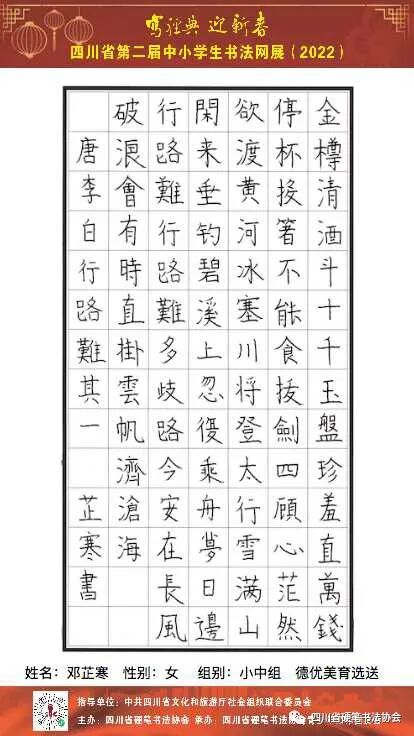 寫經典 迎新春
四川省第二届中小学生书法网展（2022）
金樽清酒斗十千玉盤珍羞直萬錢
停杯投箸不能食拔劍四顧心茫然
欲渡黄河冰塞川将登太行雪满山
閑来垂钓碧溪上忽復乘舟夢日邊
行路難行路難多歧路今安在長風
破浪會有時直掛雲帆濟滄海
唐李白行路難其一 芷寒書
姓名：邓芷寒 性别：女 组别：小中组 德优美育选送
指导单位：中共四川省文化和旅游厅社会组织联合委员会
主办：四川省硬笔书法协会 承办：四川省硬笔书法
四川省硬笔书法协会